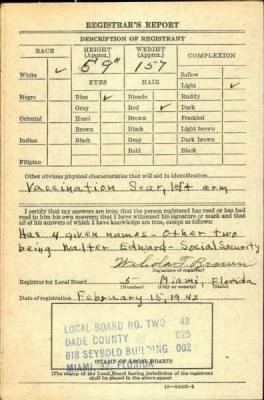 REGISTRAR'S REPORT
DESCRIPTION OF REGISTRANT
RACE
HEIGHT (Approx.)
WEIGHT (Approx.)
COMPLEXION
White ✓
5' 9"
157
Sallow
EYES
HAIR
Light ✓
Negro
Blue ✓
Blonde
Ruddy
Gray
Red ✓
Dark
Oriental
Hazel
Brown
Freckled
Brown
Black
Light brown
Indian
Black
Gray
Dark brown
Bald
Black
Filipino
Other obvious physical characteristics that will aid in identification
Vaccination Scar, left arm
I certify that my answers are true; that the person registered has read or has had
read to him his own answers; that I have witnessed his signature or mark and that
all of his answers of which I have knowledge are true, except as follows:
Has 4 given names. Other two
being Walter Edward - Social Security
Brown
(Signature of registrar)
Registrar for Local Board 5 Miami, Florida
(Number) (City or county) (State)
Date of registration February 15, 1942
LOCAL BOARD NO. TWO 42
DADE COUNTY 025
618 SEYBOLD BUILDING 002
MIAMI, 32, FLORIDA
(STAMP OF LOCAL BOARD)
(The stamp of the Local Board having jurisdiction of the registrant
shall be placed in the above space.)